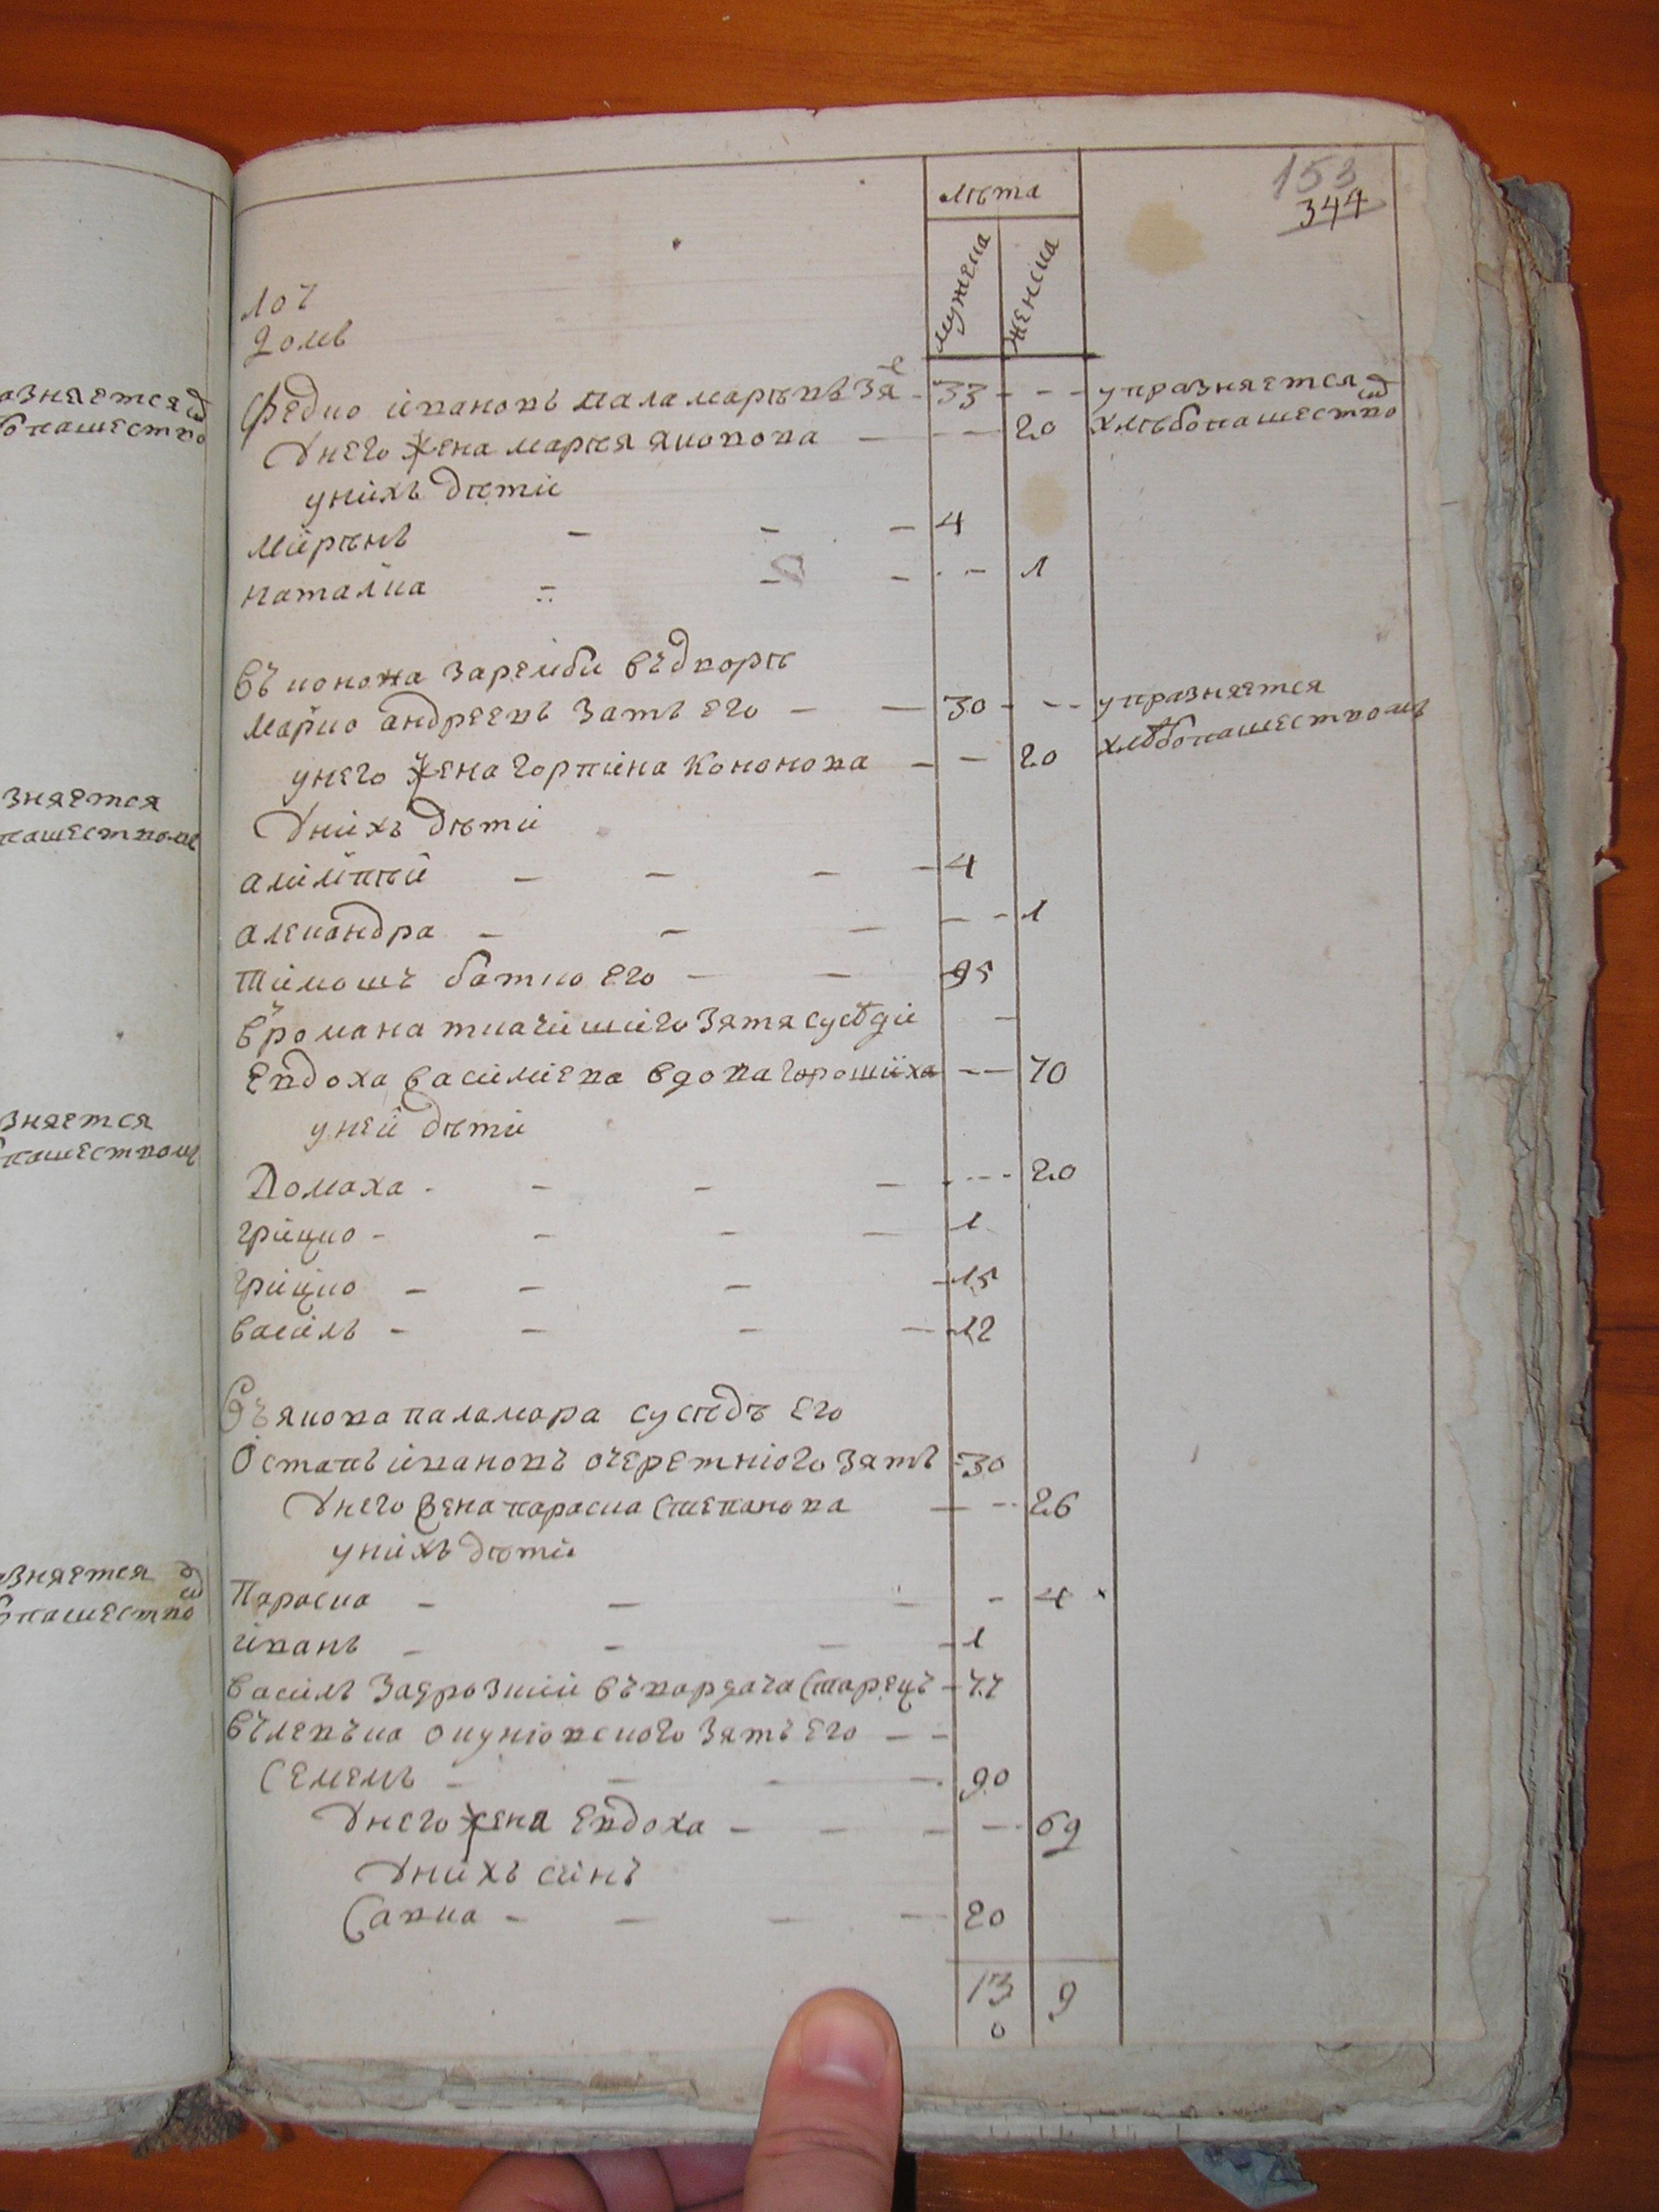 153
344
лѣта
мужеска
женска
104
домъ
Федко ивановъ паламарѣвъ зять
33
упразняется
хлѣбопашество
у него жена марѣя яковова
20
у нихъ дѣти
мирѣнъ
4
наталка
1
въ конона зарембы въ дворѣ
марко андреевъ зать его
30
упразняется
хлѣбопашествомъ
у него жена горпина кононова
20
у нихъ дѣти
алимпѣй
4
александра
1
тимошъ батко его
95
в романа ткачишиго зятя сусѣди
Евдоха василиева вдова горошиха
70
у ней дѣти
Домаха
20
грицко
1
грицко
15
василь
12
въ якова паламара сусѣдъ его
Остапъ ивановъ очеретнюго зять
30
у него жена параска степанова
26
у нихъ дѣти
Параска
4
иванъ
1
василь въ кардача старецъ
77
въ левъка окунювского зять его
Семенъ
90
у него жена Евдоха
69
у нихъ синъ
Савка
20
13
9
0
азняется
бопашество
зняется
пашествомъ
зняется
пашествомъ
азняется
бпашество